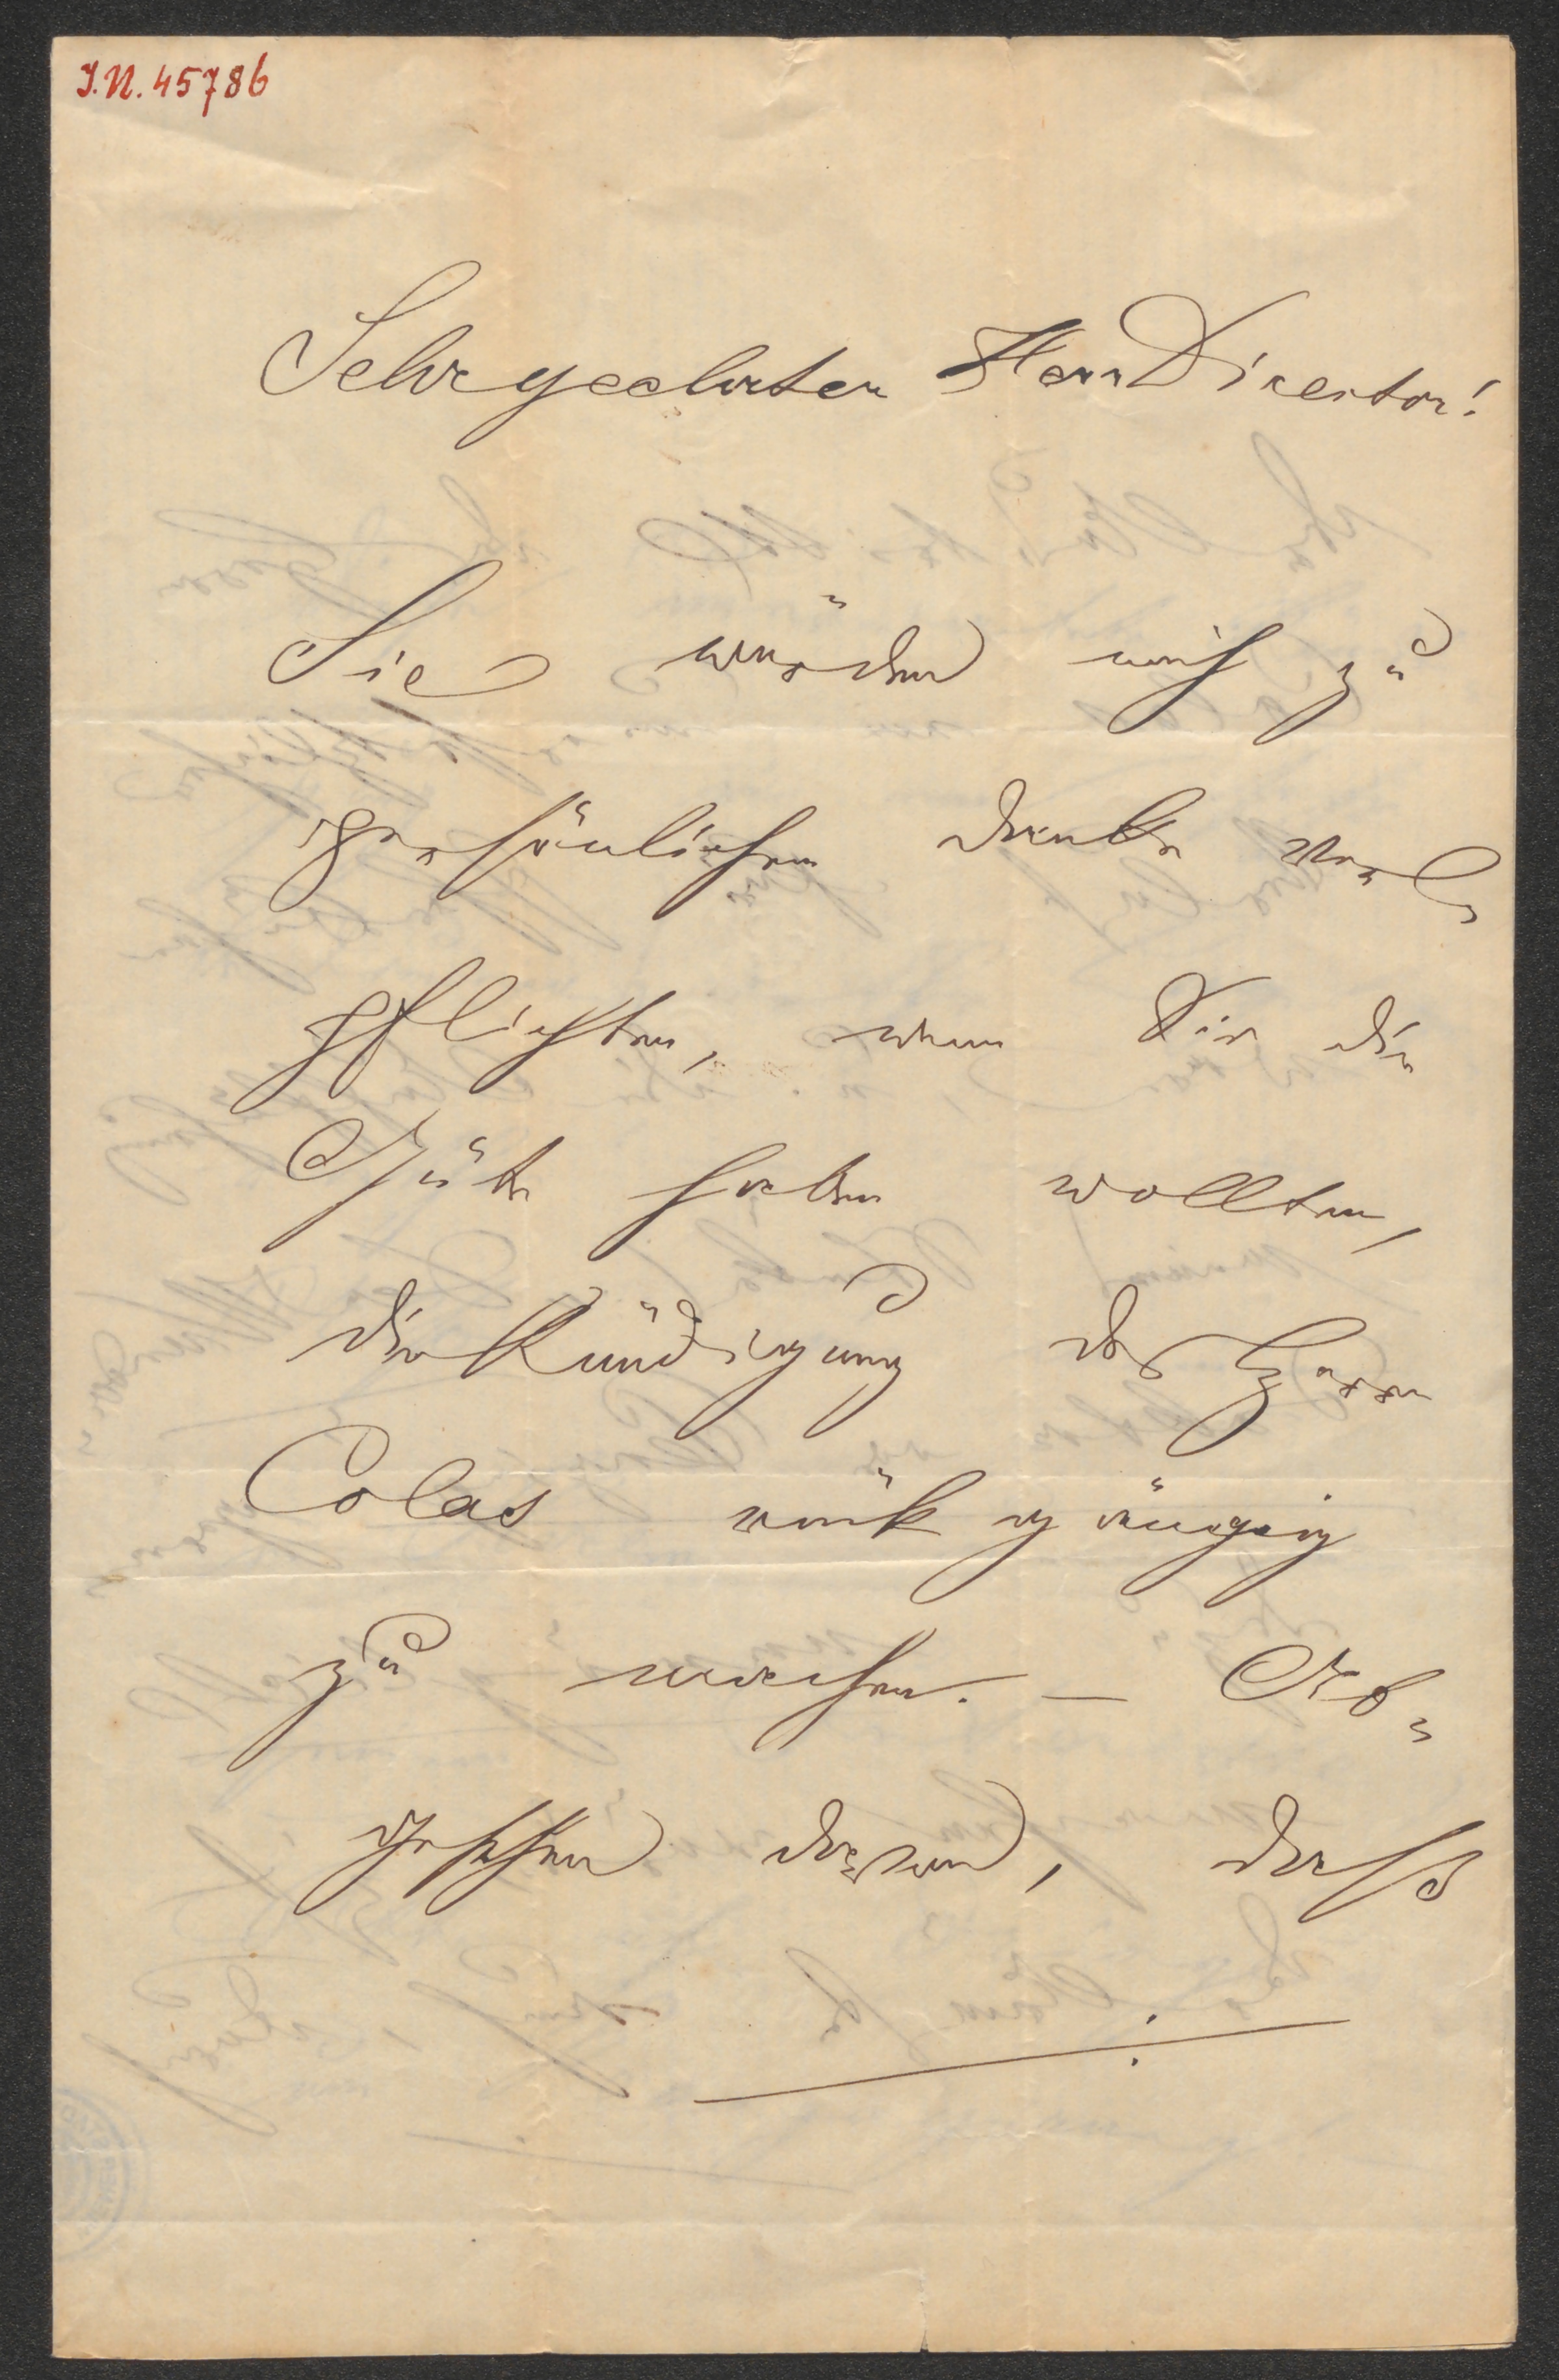 J.N. 45786
Sehrgeehrter Herr Director!
Sie würden mich zu
persönlichem Danke ver-
pflichten, wenn Sie die
Güte haben wollten,
die Kündigung des Herrn
Colas rückgängig
zu machen. — Ab-
gesehen davon, dass